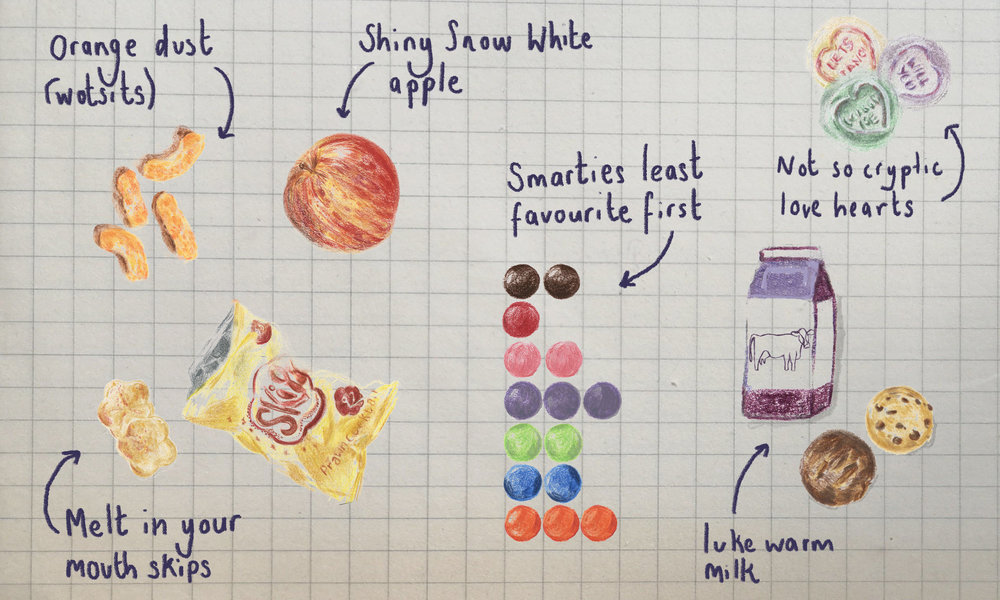 Orange dust
(wotsits)
Shiny Snow White
apple
LETS
TANGO
WILL
YOU
Not so cryptic
love hearts
Smarties least
favourite first
Skips
92
Prawn Cocktail
Melt in your
mouth skips
luke warm
milk